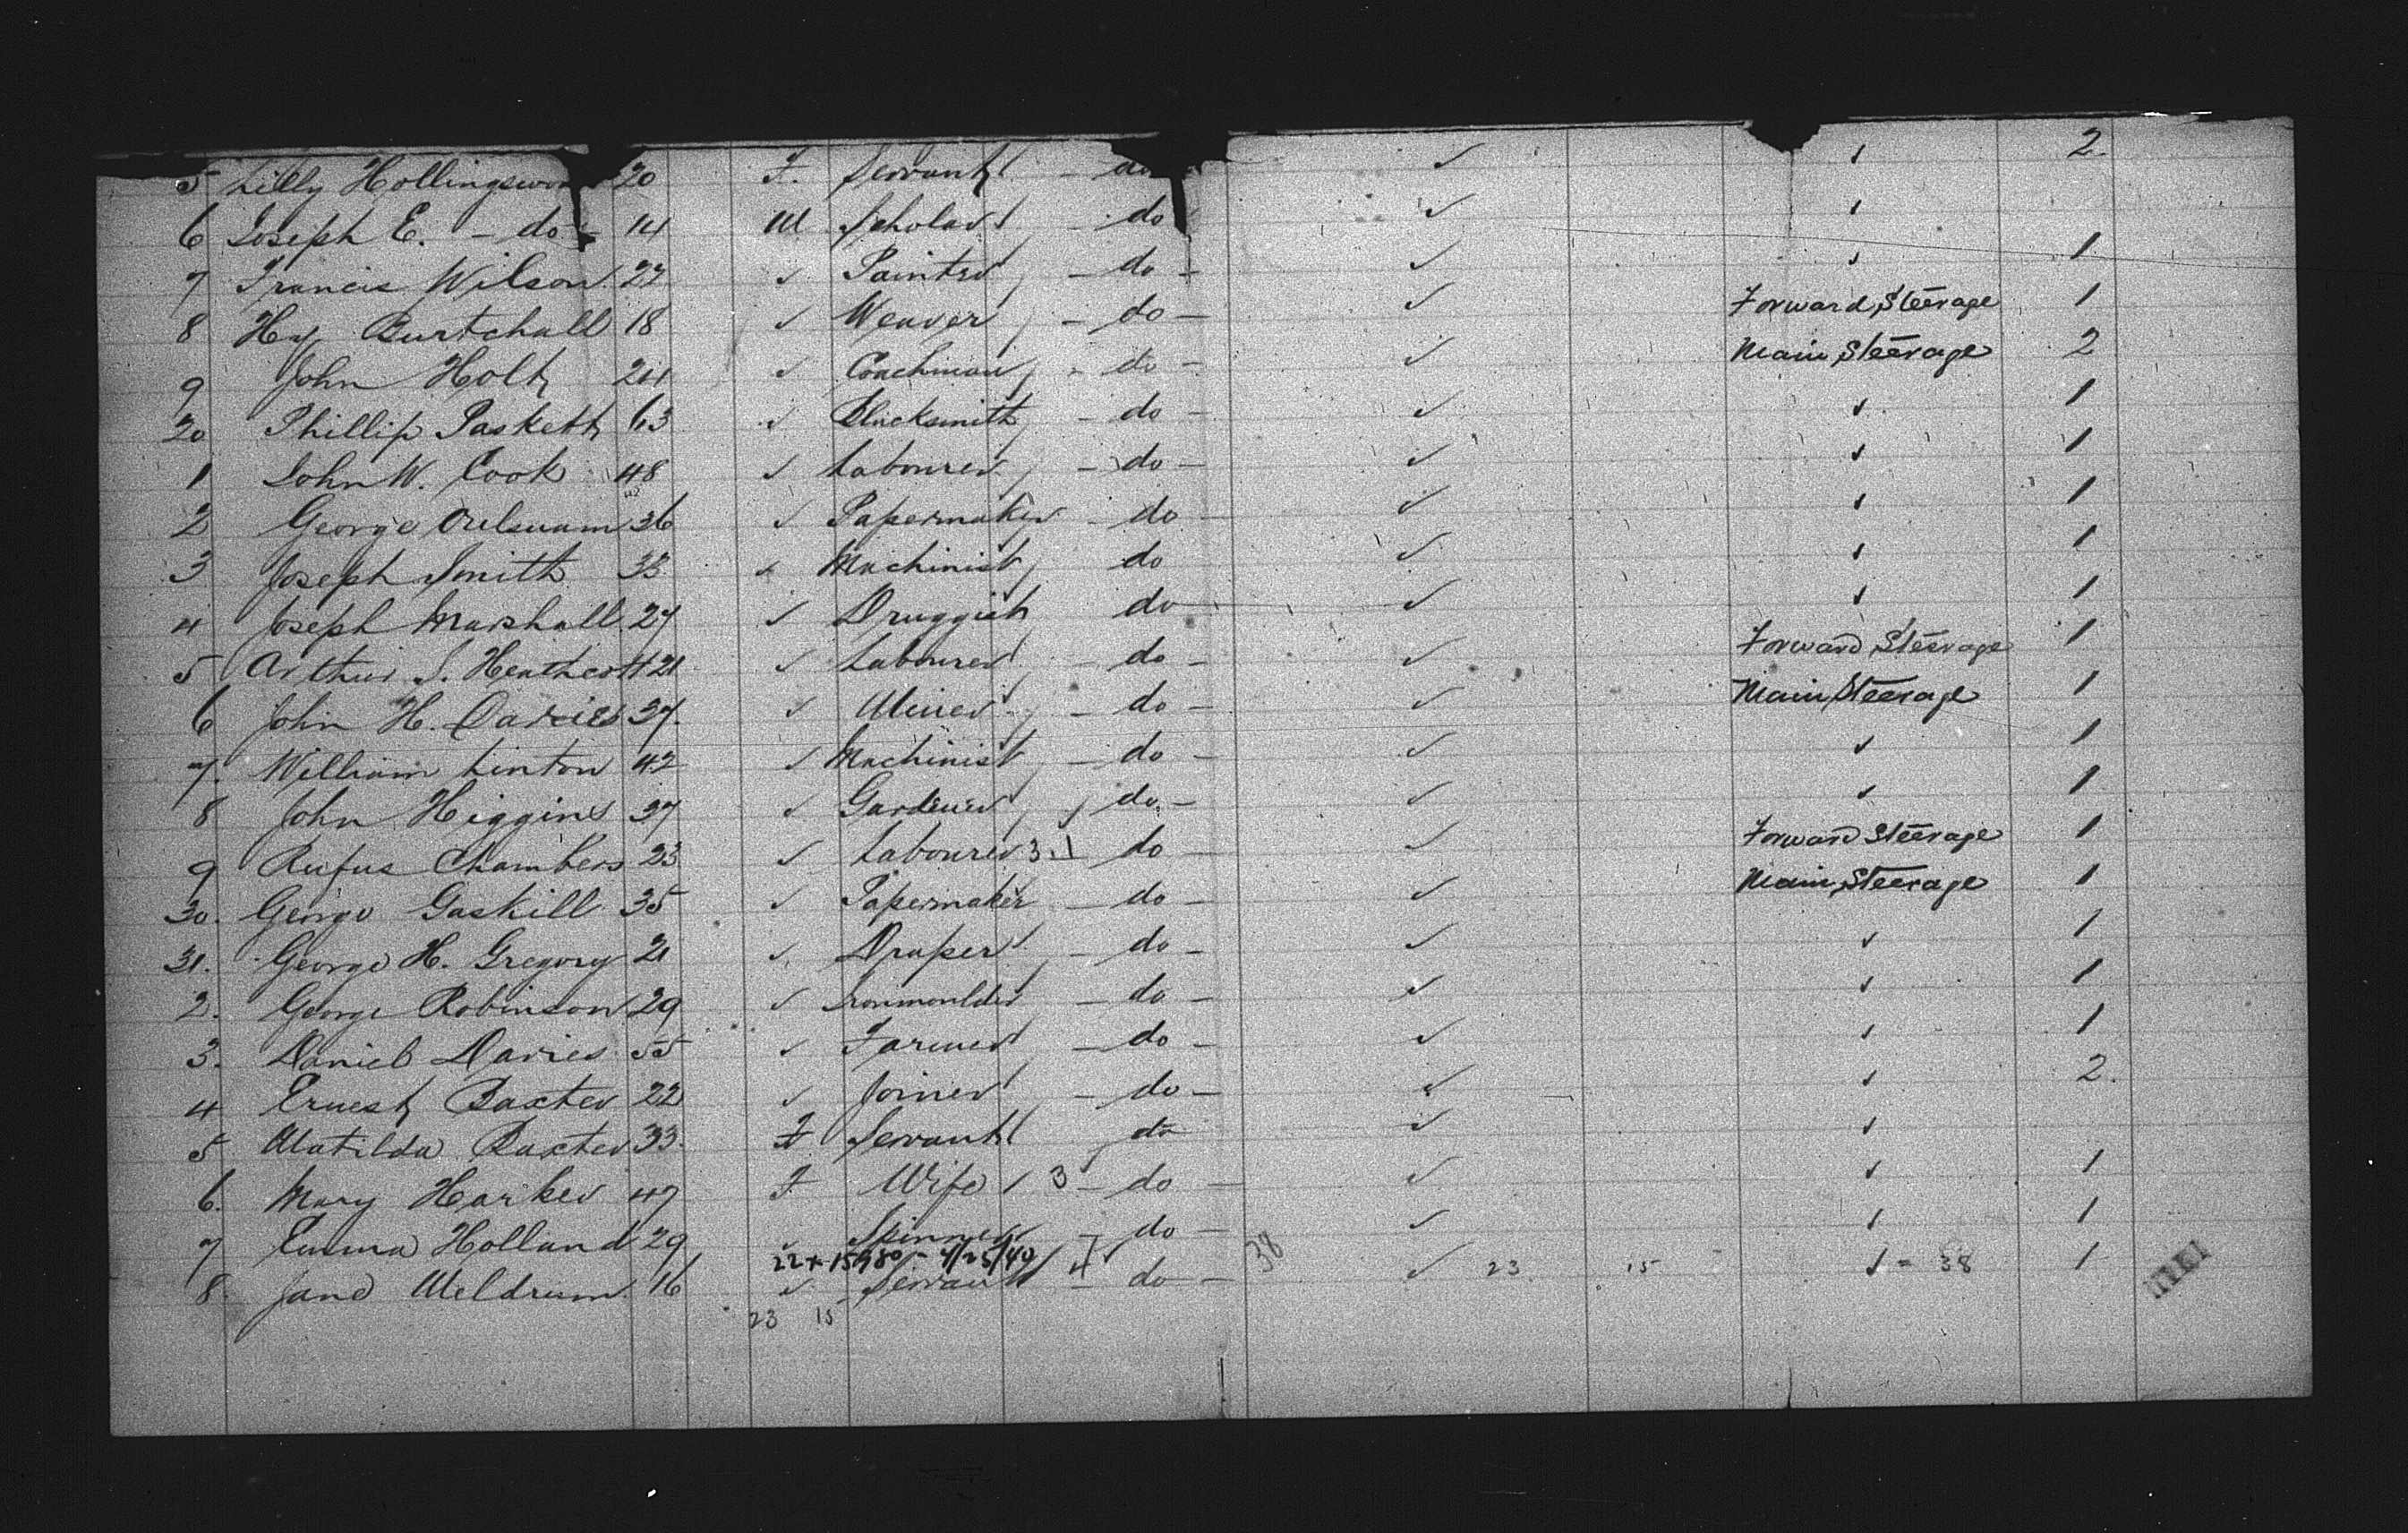 5 Lilly Hollingswor 20 F. Servant - do ✓ ✓ 2
6 Joseph E. - do - 14 M Scholar - do ✓ ✓
7 Francis Wilson 22 ✓ Painter - do - ✓ ✓ 1
8 Hy Burtchall 18 ✓ Weaver - do - ✓ Forward Steerage 1
9 John Holt 24 ✓ Coachman - do - ✓ Main Steerage 2
20 Phillip Paskett 63 ✓ Blacksmith - do - ✓ ✓ 1
1 John W. Cook 48 ✓ Labourer - do - ✓ ✓ 1
2 George 36 ✓ Papermaker - do - ✓ ✓ 1
3 Joseph Smith 33 ✓ Machinist do ✓ ✓ 1
4 Joseph Marshall 27 ✓ Druggist do - ✓ ✓ 1
5 Arthur S. Heathcott 21 ✓ Labourer - do - ✓ Forward Steerage 1
6 John H. Davies 37 ✓ Miner - do - ✓ Main Steerage 1
7. William Linton 42 ✓ Machinist - do - ✓ ✓ 1
8 John Higgins 37 ✓ Gardener do - ✓ ✓ 1
9 Rufus Chambers 23 ✓ Labourer 3.1 do - ✓ Forward Steerage 1
30. George Gaskill 35 ✓ Papermaker - do - ✓ Main Steerage 1
31. George H. Gregory 21 ✓ Draper - do - ✓ ✓ 1
2. George Robinson 29 ✓ Ironmoulder - do - ✓ ✓ 1
3. Daniel Davies 55 ✓ Farmer - do - ✓ ✓ 1
4 Ernest Baxter 22 ✓ Joiner - do - ✓ ✓ 2.
5 Matilda Baxter 33 F Servant do ✓ ✓
6. Mary Harker 49 F Wife 3 - do - ✓ ✓ 1
7 Emma Holland 29 ✓ Spinner - do - ✓ ✓ 1
22 x-15980 - 4/25/40
8. Jane Meldrum 16 ✓ Servant - do - 38 ✓ 23 15 ✓ = 38 1
23 15